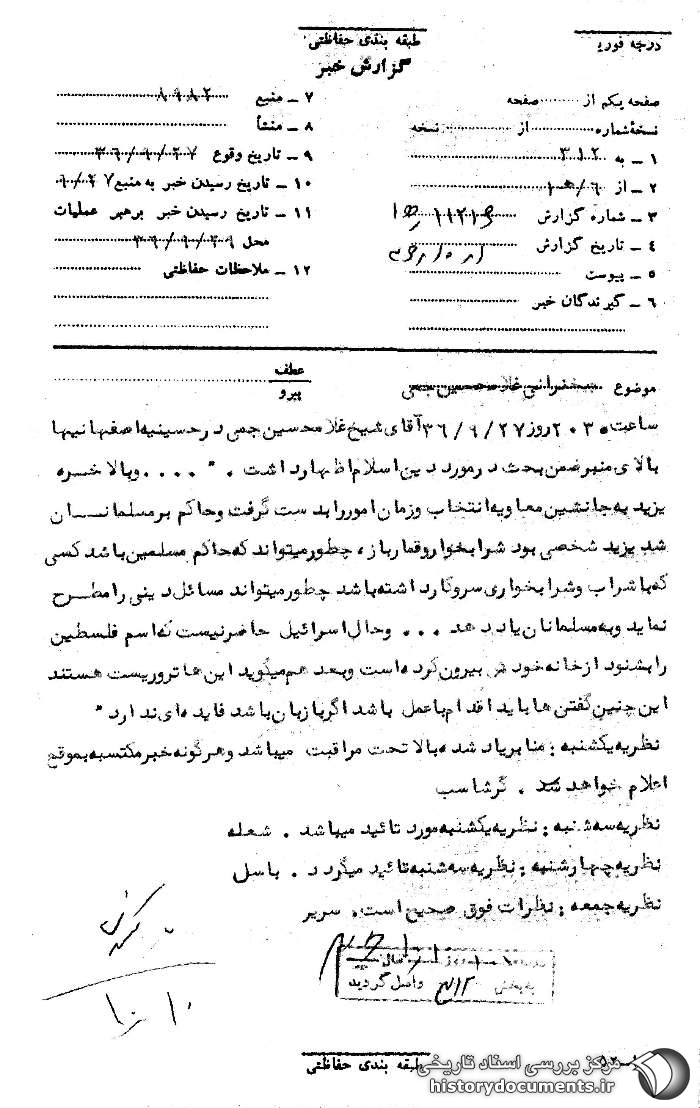 درجه فوریت
طبقه بندی حفاظتی
گزارش خبر
صفحه یکم از صفحه
نسخه شماره از نسخه
۱ - به ۳۱۲
۲ - از
۳ - شماره گزارش
۴ - تاریخ گزارش
۵ - پیوست
۶ - گیرندگان خبر
۷ - منبع ۸۹۸۲
۸ - منشأ
۹ - تاریخ وقوع
۱۰ - تاریخ رسیدن خبر به منبع
۱۱ - تاریخ رسیدن خبر برهبر عملیات
محل
۱۲ - ملاحظات حفاظتی
عطف
پیرو
موضوع سخنرانی غلامحسین جمی
ساعت ۲۰۳۰ روز ۳۶/۹/۲۷ آقای شیخ غلامحسین جمی در حسینیه اصفهانیها
بالای منبر ضمن بحث در مورد دین اسلام اظهار داشت . " .... و بالاخره
یزید به جانشین معاویه انتخاب و زمان امور را بدست گرفت و حاکم بر مسلمانان
شد یزید شخصی بود شرابخوار و قمارباز، چطور میتواند که حاکم مسلمین باشد کسی
که با شراب و شرابخواری سروکار داشته باشد چطور میتواند مسائل دینی را مطرح
نماید و به مسلمانان یاد دهد ... و حال اسرائیل حاضر نیست که اسم فلسطین
را بشنود از خانه خود بیرون کرده است و بعد هم میگوید این ها تروریست هستند
این چنین گفتن ها باید اقدام با عمل باشد اگر با زبان باشد فایده ای ندارد "
نظریه یکشنبه : منابر یاد شده بالا تحت مراقبت میباشد و هرگونه خبر مکتسبه بموقع
اعلام خواهد شد . گرشاسب
نظریه سه شنبه : نظریه یکشنبه مورد تائید میباشد . شعله
نظریه چهارشنبه : نظریه سه شنبه تائید میگردد . باسل
نظریه جمعه : نظرات فوق صحیح است . سریر
به بخش ۳۱۲ واصل گردید
طبقه بندی حفاظتی
مرکز بررسی اسناد تاریخی
historydocuments.ir